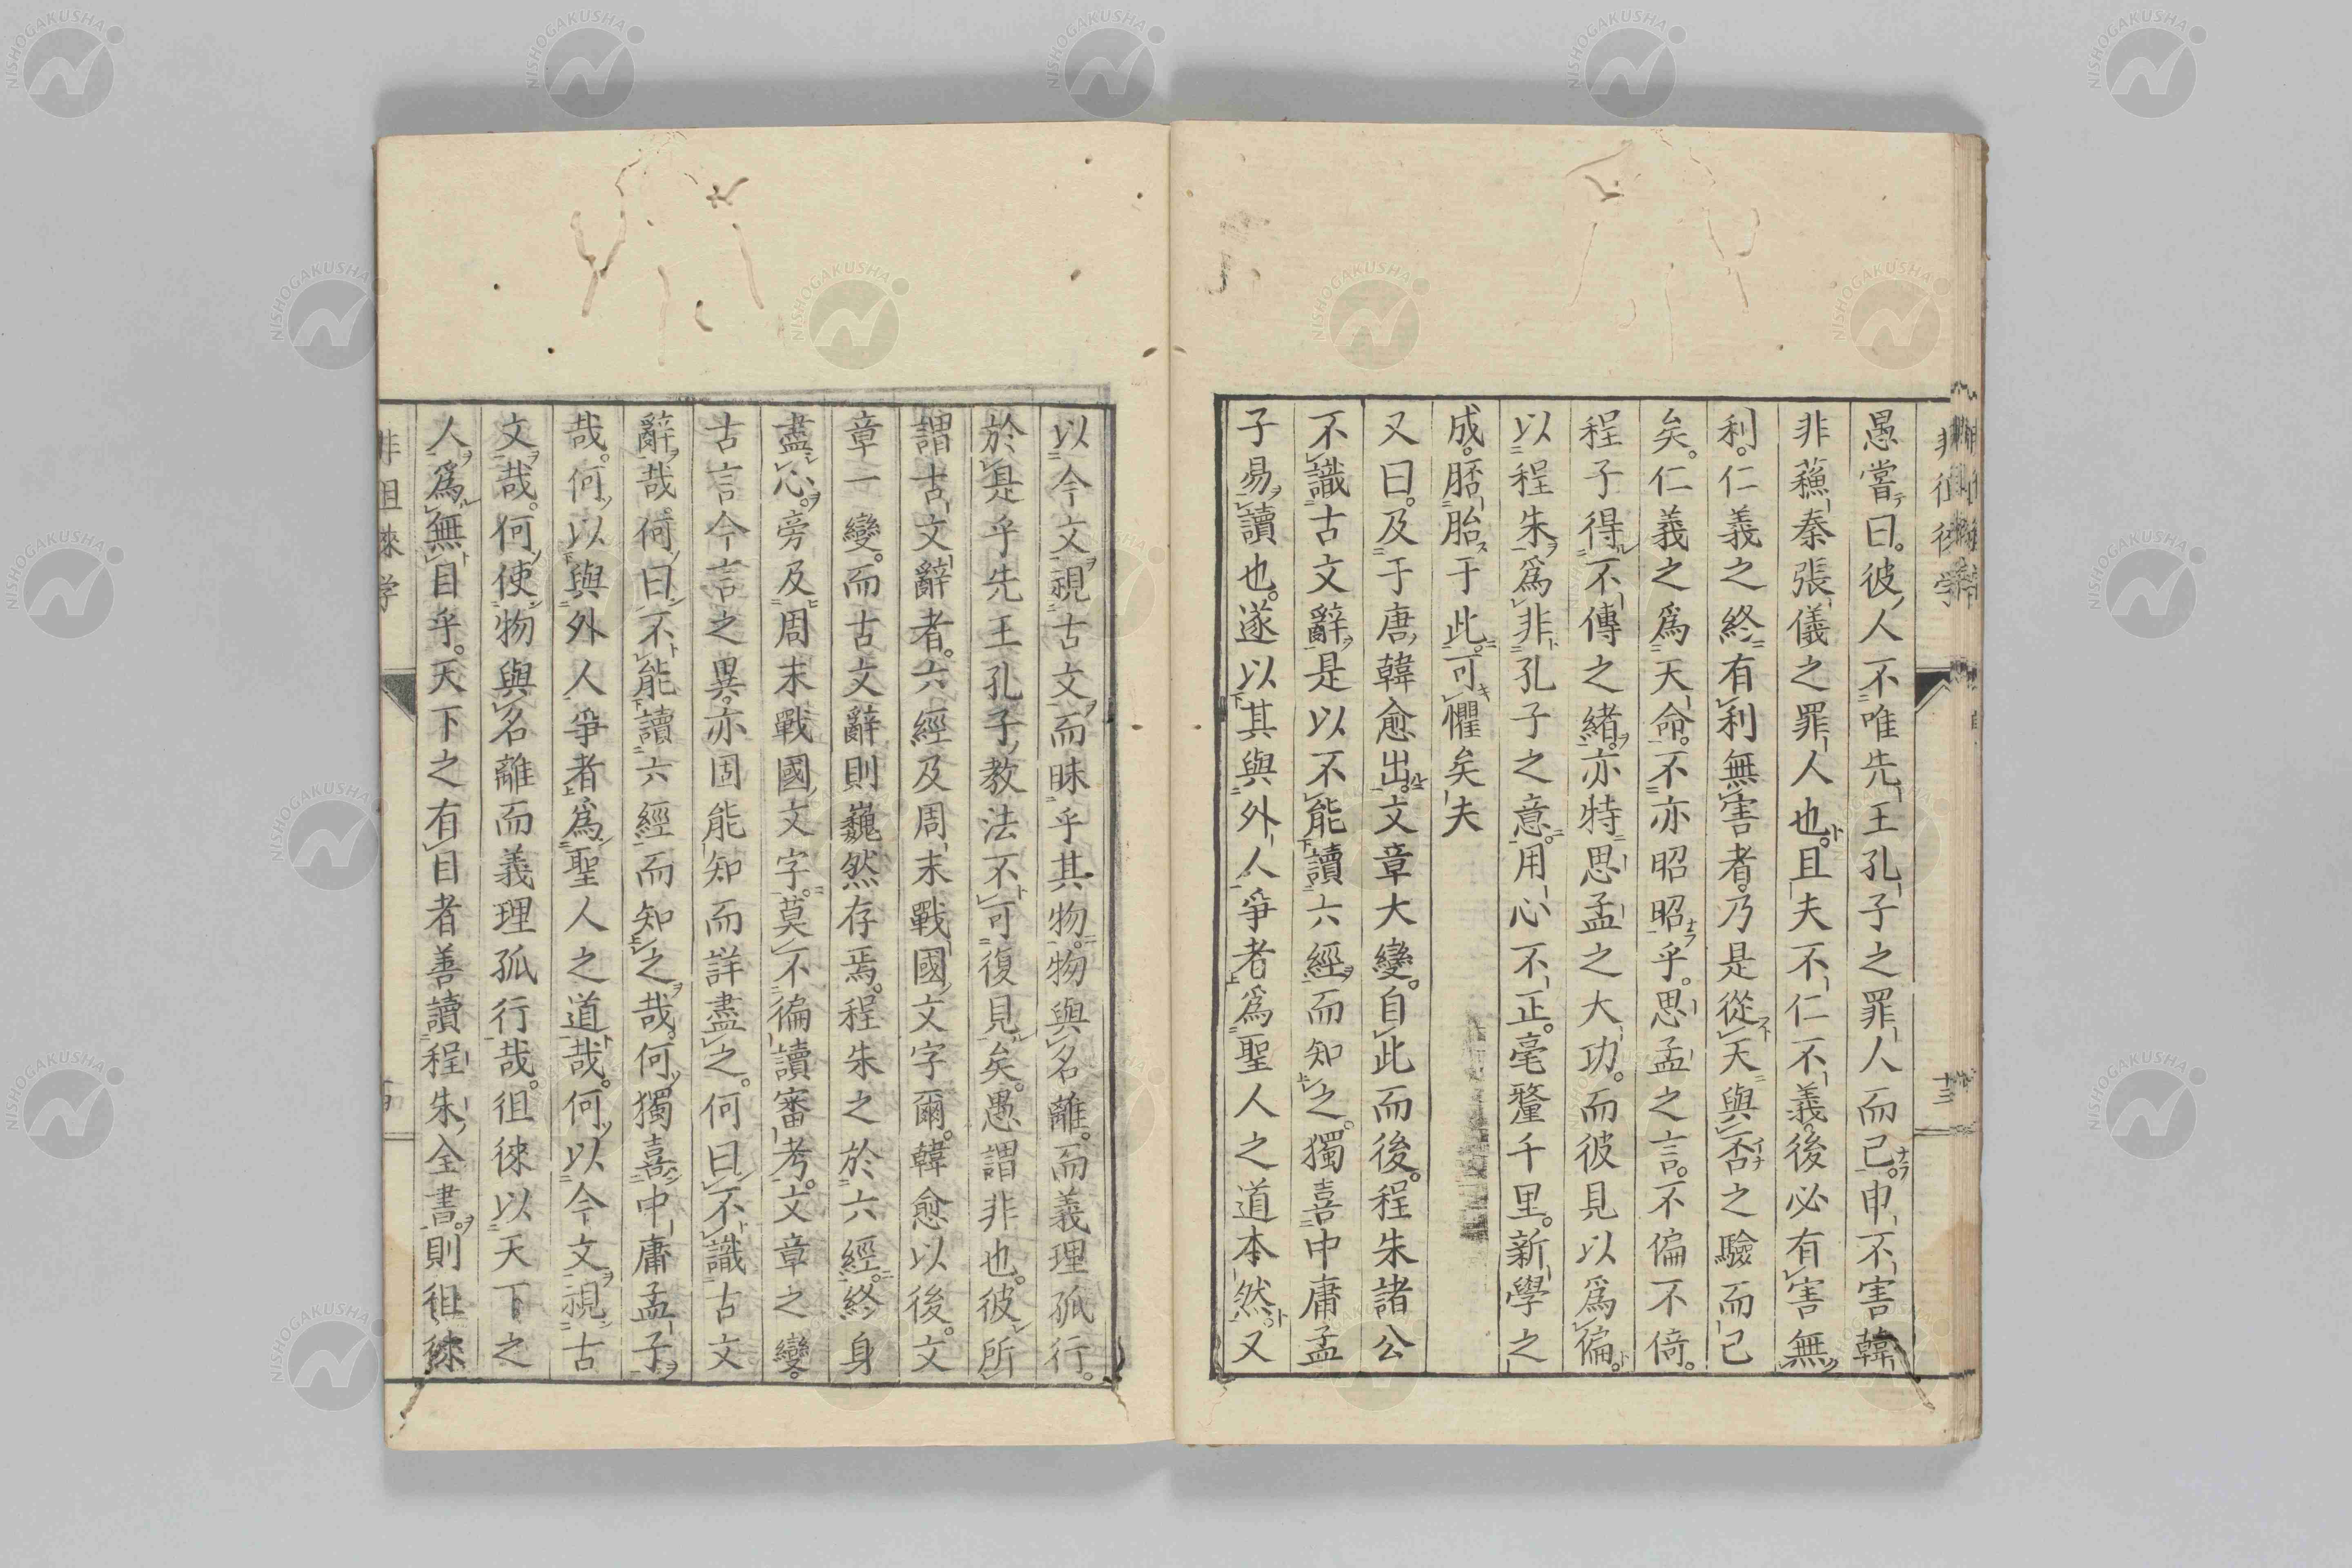 愚嘗曰。彼人不唯先王孔子之罪人而已。申不害韓
非蘓秦張儀之罪人也。且夫不仁不義。後必有害無
利。仁義之終有利無害者。乃是從天與否之驗而已
矣。仁義之爲天命。不亦昭昭乎。思孟之言。不偏不倚。
程子得不傳之緒。亦特思孟之大功。而彼見以爲偏。
以程朱爲非孔子之意。用心不正。毫釐千里。新學之
成。胚胎于此。可懼矣夫
又曰。及于唐韓愈出。文章大變。自此而後。程朱諸公
不識古文辭。是以不能讀六經而知之。獨喜中庸孟
子易讀也。遂以其與外人爭者爲聖人之道本然。又
以今文視古文。而昧乎其物。物與名離。而義理孤行。
於是乎先王孔子教法不可復見矣。愚謂非也。彼所
謂古文辭者。六經及周末戰國文字爾。韓愈以後。文
章一變。而古文辭則巍然存焉。程朱之於六經。終身
盡心。旁及周末戰國文字。莫不徧讀審考。文章之變。
古言今言之異。亦固能知而詳盡之。何曰不識古文
辭哉。何曰不能讀六經而知之哉。何獨喜中庸孟子
哉。何以與外人爭者爲聖人之道哉。何以今文視古
文哉。何使物與名離而義理孤行哉。徂徠以天下之
人爲無目乎。天下之有目者善讀程朱全書。則徂徠
非徂徠学